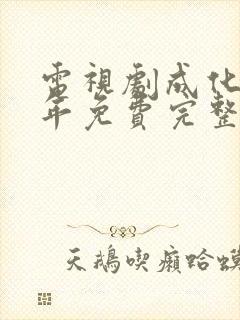 電視劇成化
年免費完整
天鵝喫癩蛤蟆